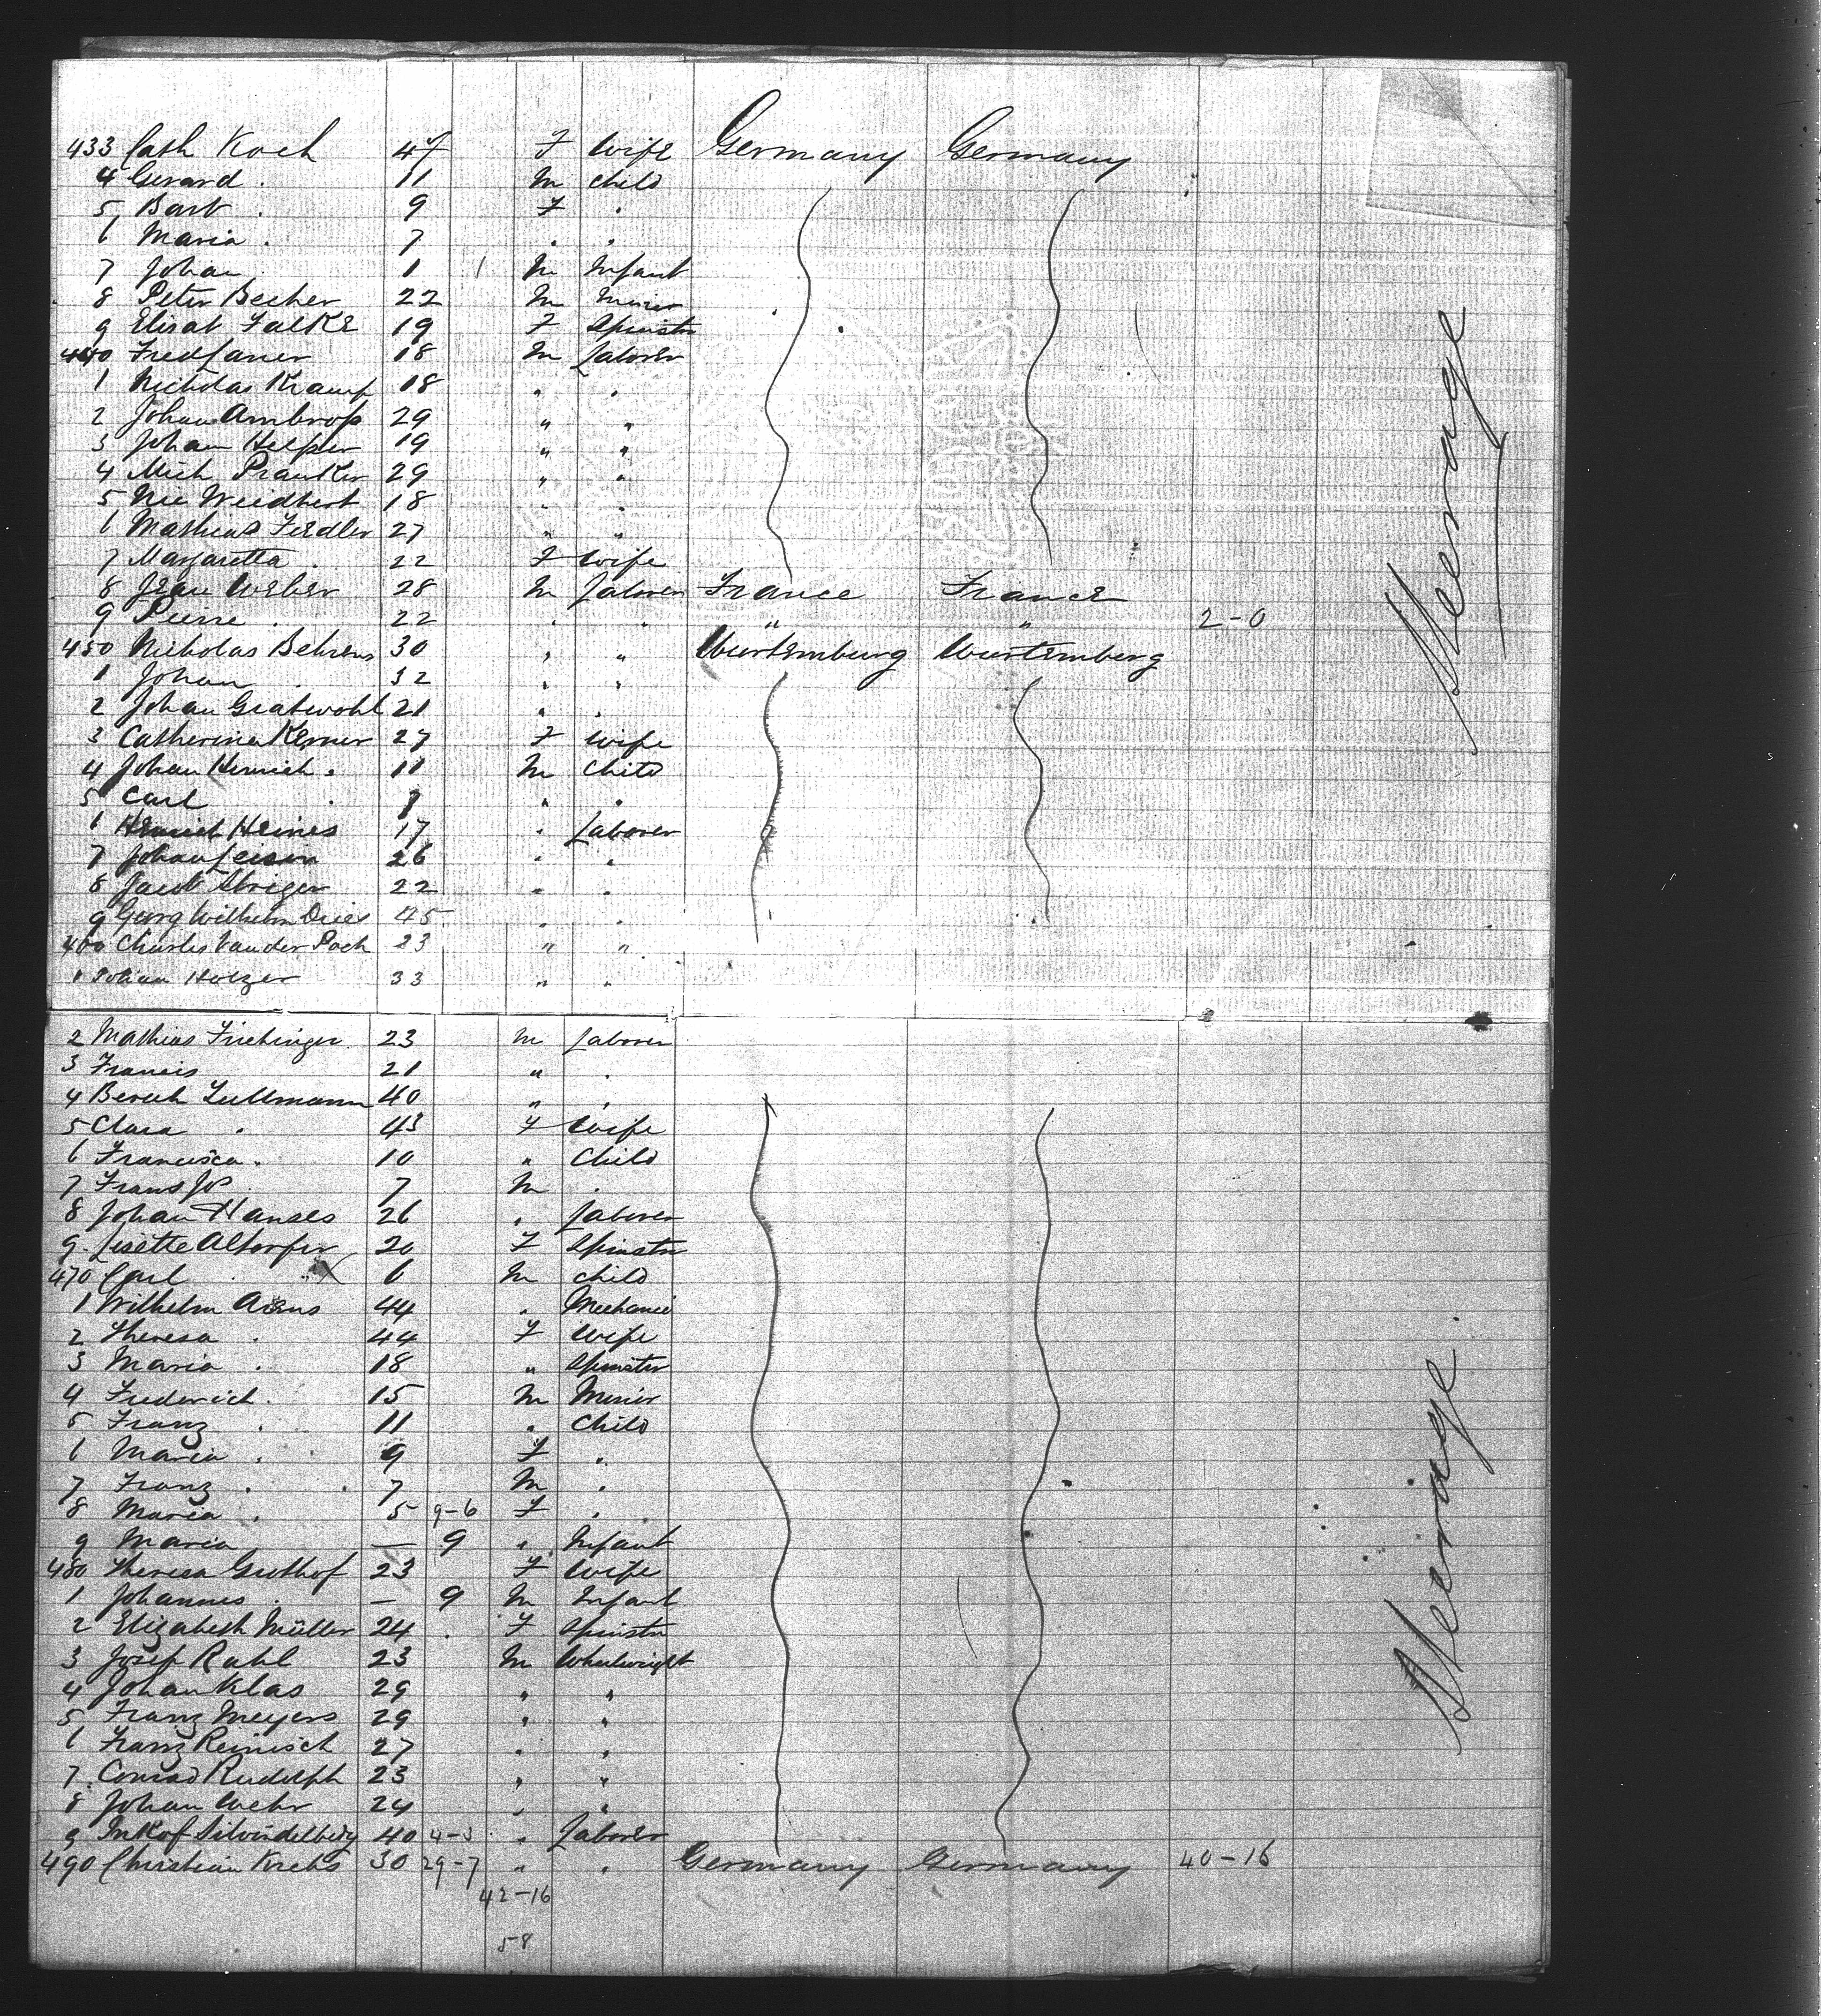 433 Cath Koch 47 F Wife Germany Germany
4 Gerard . 11 M Child
5 Barb . 9 F .
6 Maria . 7 . .
7 Johan 1 M Infant
8 Peter Becher 22 M
9 Elisab Falke 19 F Spinster
440 Fred Laner 18 M Laborer
1 Nicholas Kramp 18 . .
2 Johan Ambross 29 " "
3 Johan Helper 19 " "
4 Mich 29 " "
5 Nic Weidbert 18 " "
6 Mathias Fiedler 27 " "
7 Margaretta . 22 F Wife
8 Jean Weber 28 M Laborer France France
9 Pierre . 22 . . " " 2-0
450 Nicholas Behrens 30 " " Wurtemburg Wurtemberg
1 Johan . 32 " "
2 Johan Gratwohl 21 . .
3 Catherina Kerner 27 F Wife
4 Johan Heinrich . 11 M Child
5 Carl . " .
6 Heinrich Heines 17 . Laborer
7 Johan Leisin 26 . .
8 Jacob Striger 22 . .
9 Georg Wilhelm Dries 45 . .
460 Charles Vander Poch 23 " "
1 Johan Holzer 33 " "
2 Mathias Friehinger 23 M Laborer
3 Francis 21 " .
4 Lullmann 40 " .
5 Clara . 43 F Wife
6 Francisca . 10 " Child
7 Frans Jos 7 M .
8 Johan Hanses 26 . Laborer
9 Lisette Altorfer 20 F Spinster
470 Carl . " 6 M Child
1 Wilhelm Arens 44 . Mechanic
2 Theresa . 44 F Wife
3 Maria . 18 " Spinster
4 Frederich . 15 M Minor
5 Franz . 11 . Child
6 Maria . 9 F .
7 Franz . 7 M .
8 Maria . 5 9-6 F .
9 Maria — 9 " Infant
480 Theresa Grothof 23 F Wife
1 Johannes . — 9 M Infant
2 Elizabeth Müller 24 F Spinster
3 Josef Rahl 23 M Wheelwright
4 Johan Klas 29 " "
5 Franz Meyers 29 " "
6 Franz Reinisch 27 . "
7 Conrad Rudolph 23 " "
8 Johan Wehr 24 . "
9 40 4-3 . Laborer
490 Christian Krebs 30 29-7 " . Germany Germany 40-16
42-16
58
Steerage
Steerage